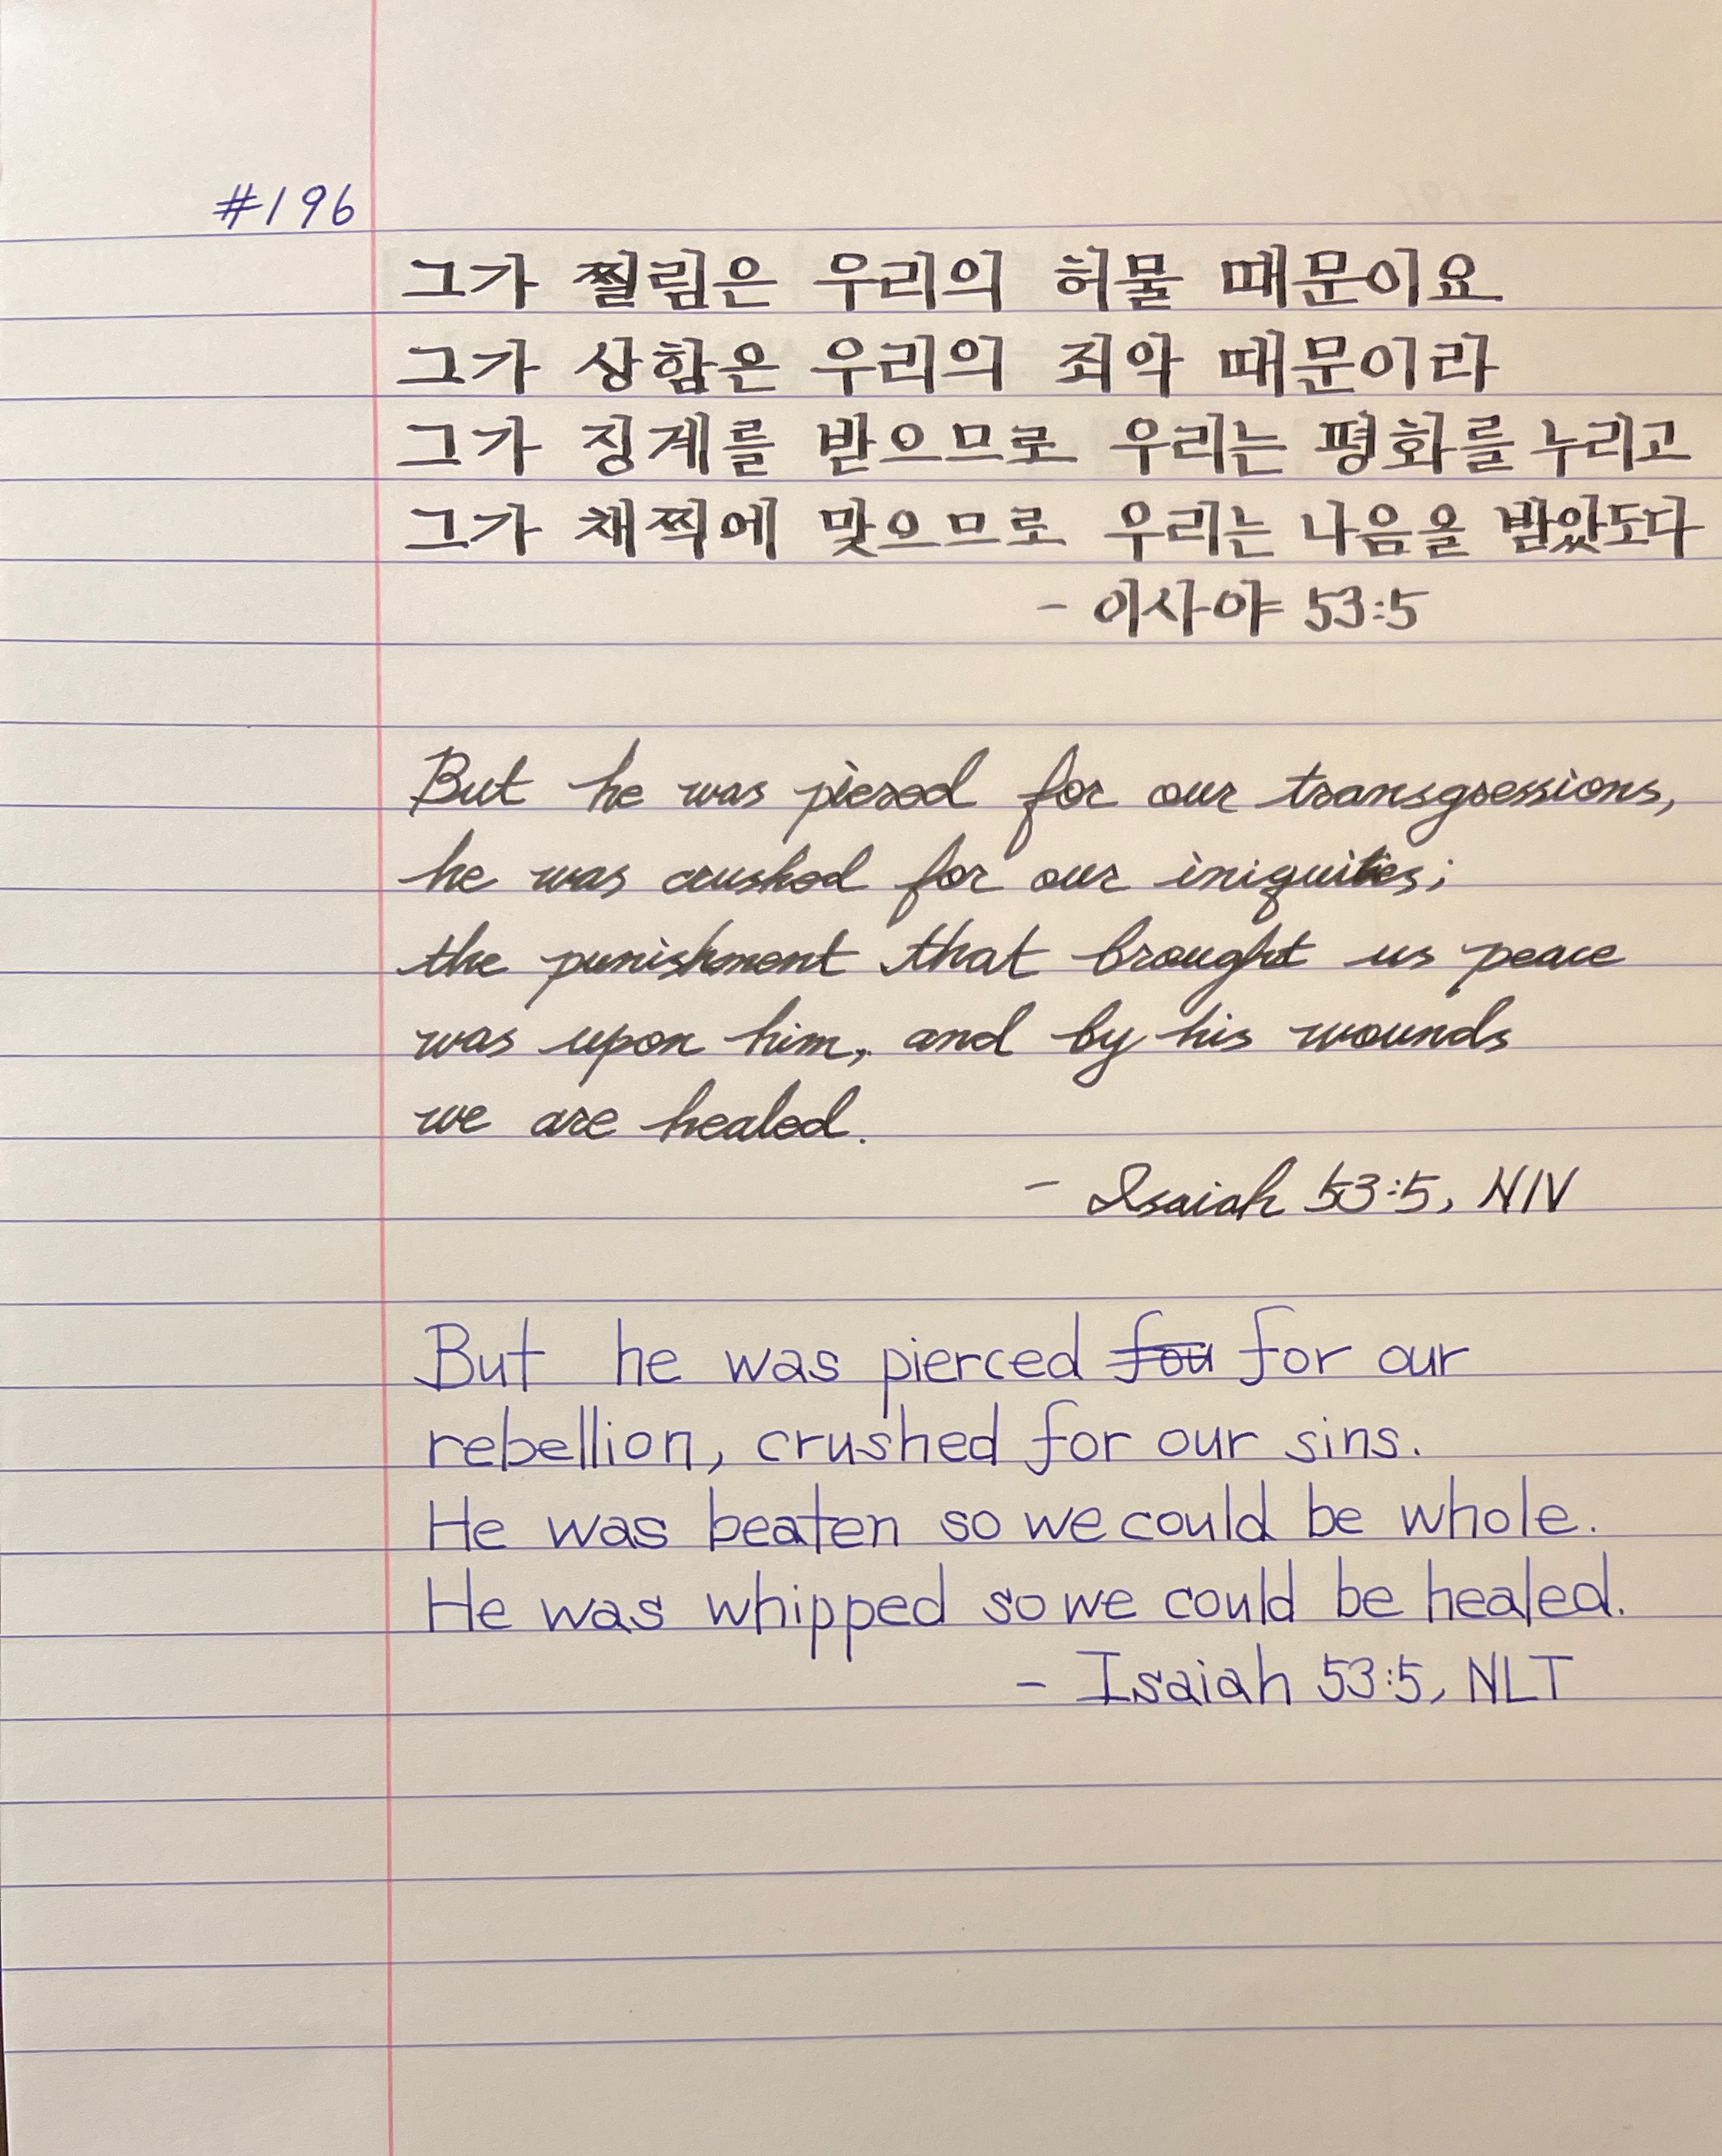 #196
그가 찔림은 우리의 허물 때문이요
그가 상함은 우리의 죄악 때문이라
그가 징계를 받으므로 우리는 평화를 누리고
그가 채찍에 맞으므로 우리는 나음을 받았도다
- 이사야 53:5
But he was pierced for our transgressions,
he was crushed for our iniquities;
the punishment that brought us peace
was upon him, and by his wounds
we are healed.
- Isaiah 53:5, NIV
But he was pierced fou for our
rebellion, crushed for our sins.
He was beaten so we could be whole.
He was whipped so we could be healed.
- Isaiah 53:5, NLT